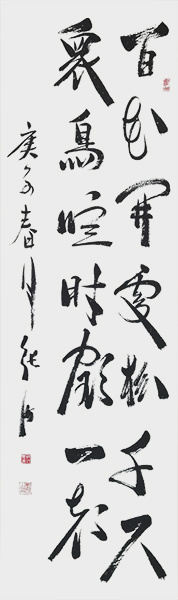 百花開處松千尺
衆鳥喧時鶴一聲
庚子春月